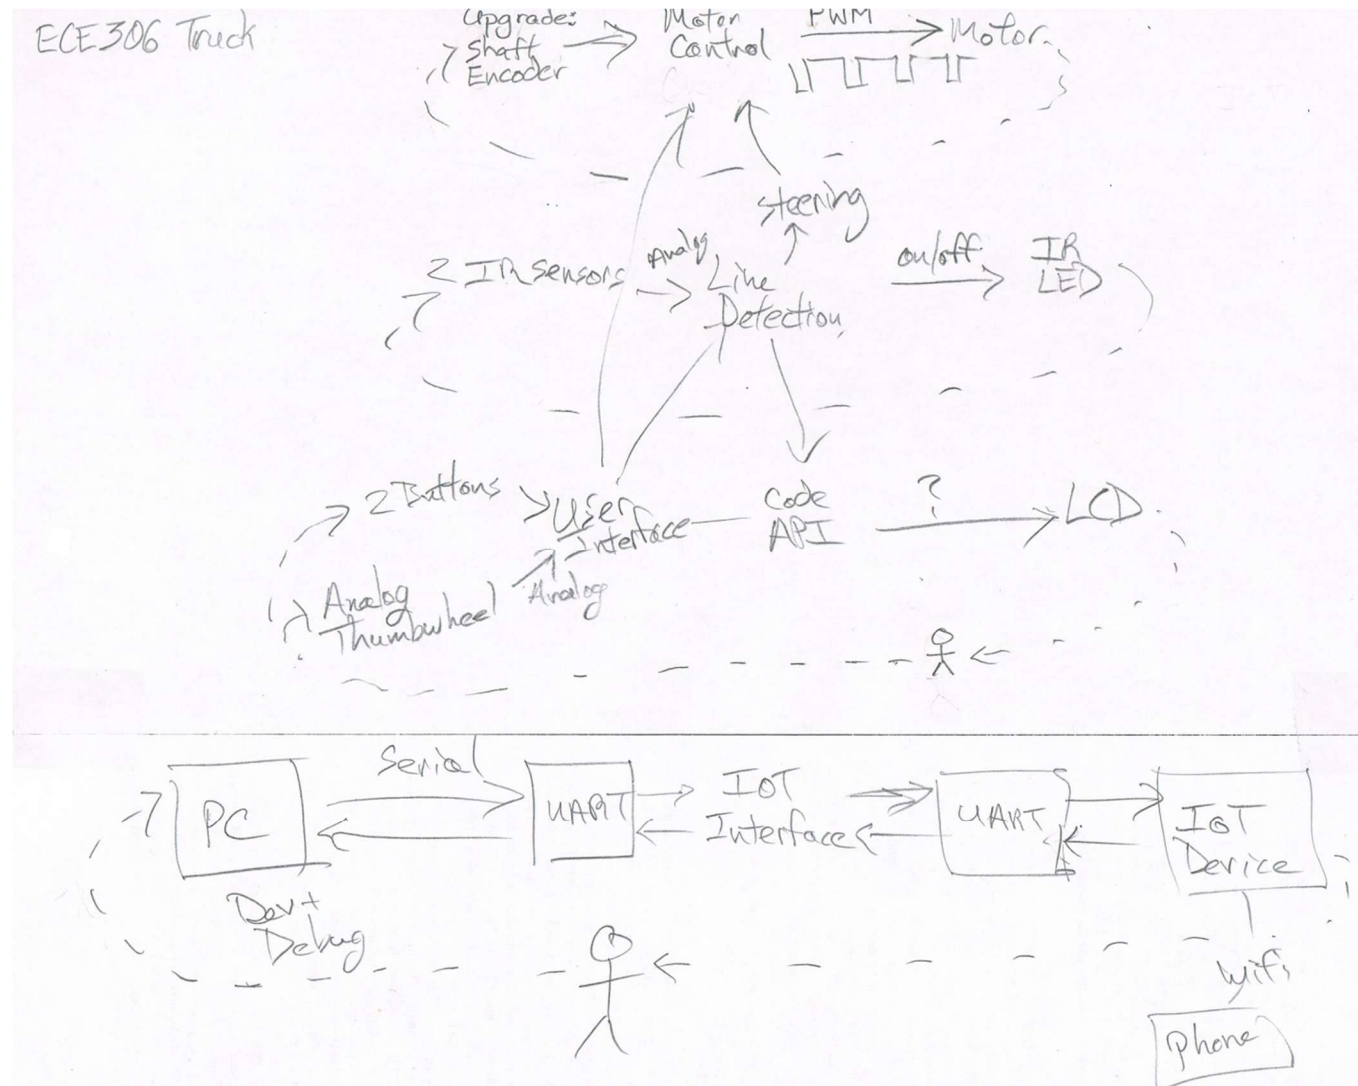 ECE306 Truck
Upgrade:
Shaft
Encoder
Motor
Control
PWM
Motor
steering
2 IR sensors
Analog
Line
Detection
on/off
IR
LED
2 Buttons
User
Interface
Code
API
?
LCD
Analog
Thumbwheel
Analog
PC
Serial
UART
IOT
Interface
UART
IOT
Device
Dev +
Debug
Wifi
Phone